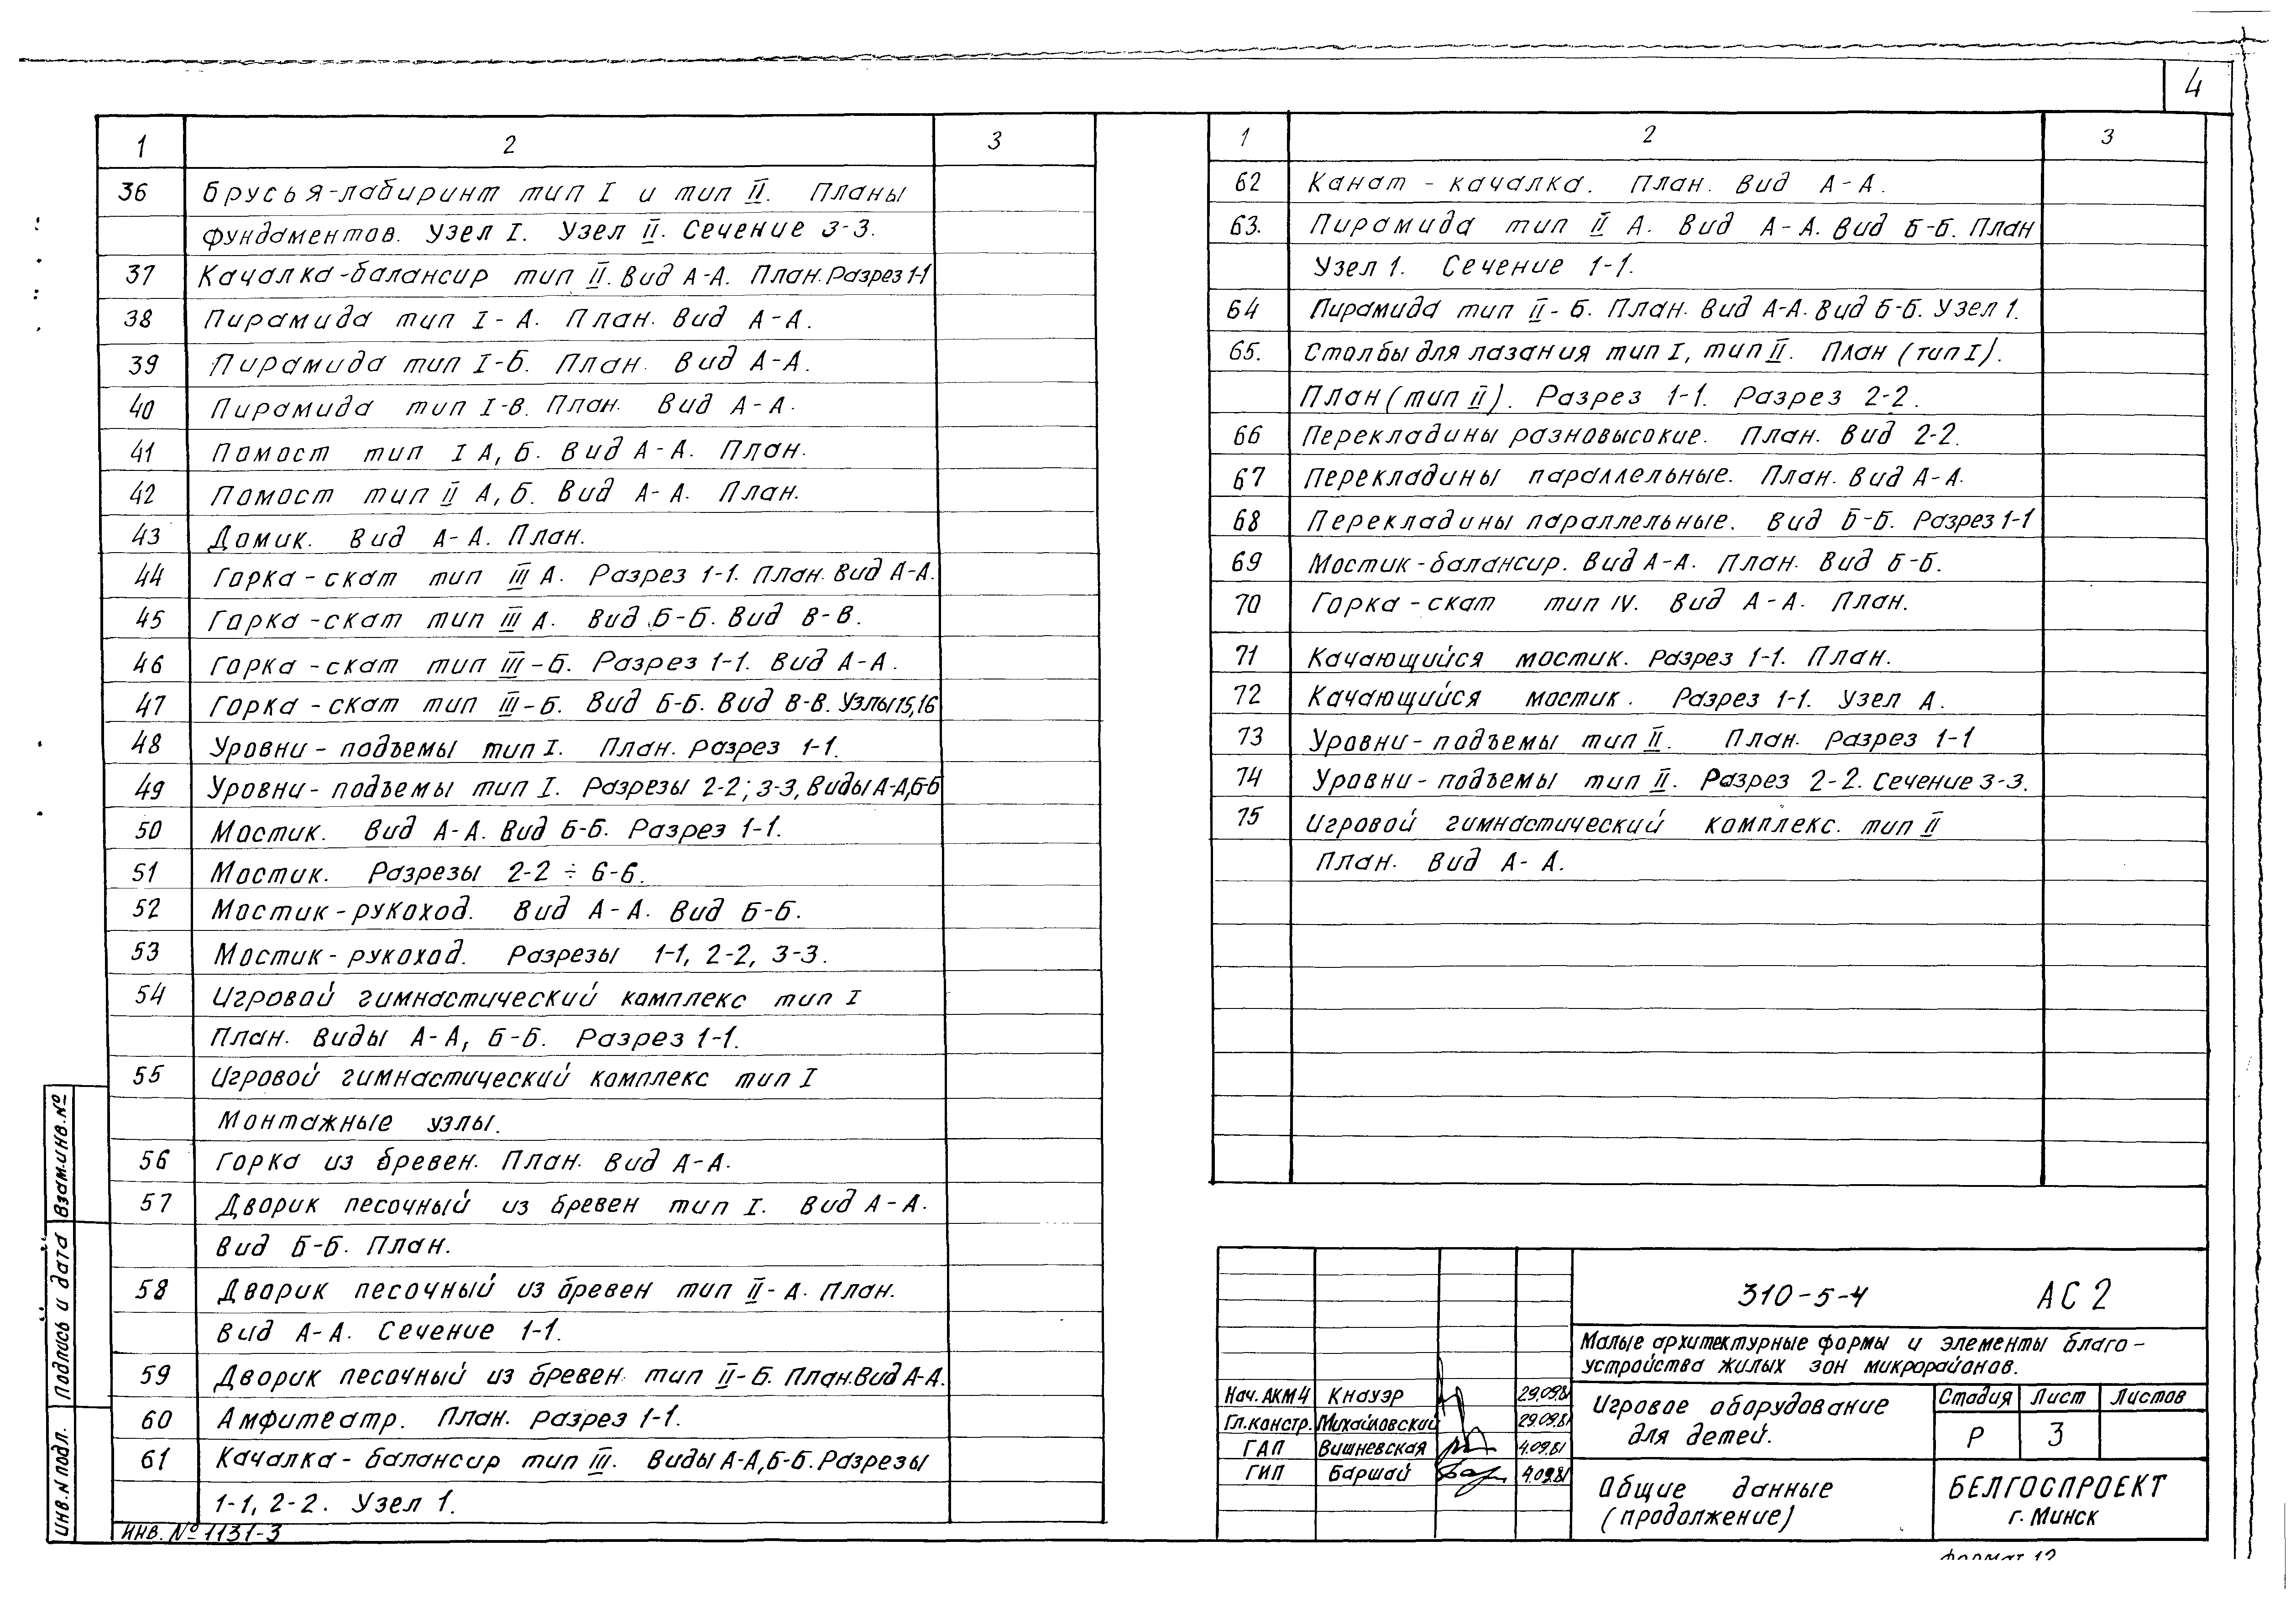 4
1 2 3
36 Брусья-лабиринт тип I и тип II. Планы
фундаментов. Узел I. Узел II. Сечение 3-3.
37 Качалка-балансир тип II. Вид А-А. План. Разрез 1-1
38 Пирамида тип I-А. План. Вид А-А.
39 Пирамида тип I-Б. План. Вид А-А.
40 Пирамида тип I-В. План. Вид А-А.
41 Помост тип I А, Б. Вид А-А. План.
42 Помост тип II А, Б. Вид А-А. План.
43 Домик. Вид А-А. План.
44 Горка-скат тип III А. Разрез 1-1. План. Вид А-А.
45 Горка-скат тип III А. Вид Б-Б. Вид В-В.
46 Горка-скат тип III-Б. Разрез 1-1. Вид А-А.
47 Горка-скат тип III-Б. Вид Б-Б. Вид В-В. Узлы 15,16
48 Уровни-подъемы тип I. План. Разрез 1-1.
49 Уровни-подъемы тип I. Разрезы 2-2; 3-3, Виды А-А, Б-Б
50 Мостик. Вид А-А. Вид Б-Б. Разрез 1-1.
51 Мостик. Разрезы 2-2 ÷ 6-6.
52 Мостик-рукоход. Вид А-А. Вид Б-Б.
53 Мостик-рукоход. Разрезы 1-1, 2-2, 3-3.
54 Игровой гимнастический комплекс тип I
План. Виды А-А, Б-Б. Разрез 1-1.
55 Игровой гимнастический комплекс тип I
Монтажные узлы.
56 Горка из бревен. План. Вид А-А.
57 Дворик песочный из бревен тип I. Вид А-А.
Вид Б-Б. План.
58 Дворик песочный из бревен тип II-А. План.
Вид А-А. Сечение 1-1.
59 Дворик песочный из бревен тип II-Б. План. Вид А-А.
60 Амфитеатр. План. Разрез 1-1.
61 Качалка-балансир тип III. Виды А-А, Б-Б. Разрезы
1-1, 2-2. Узел 1.
Инв. № 1131-3
Взам.инв.№
Подпись и дата
Инв. N подл.
1 2 3
62 Канат-качалка. План. Вид А-А.
63. Пирамида тип II А. Вид А-А. Вид Б-Б. План
Узел 1. Сечение 1-1.
64 Пирамида тип II-Б. План. Вид А-А. Вид Б-Б. Узел 1.
65. Столбы для лазания тип I, тип II. План (тип I).
План (тип II). Разрез 1-1. Разрез 2-2.
66 Перекладины разновысокие. План. Вид 2-2.
67 Перекладины параллельные. План. Вид А-А.
68 Перекладины параллельные. Вид Б-Б. Разрез 1-1
69 Мостик-балансир. Вид А-А. План. Вид Б-Б.
70 Горка-скат тип IV. Вид А-А. План.
71 Качающийся мостик. Разрез 1-1. План.
72 Качающийся мостик. Разрез 1-1. Узел А.
73 Уровни-подъемы тип II. План. Разрез 1-1
74 Уровни-подъемы тип II. Разрез 2-2. Сечение 3-3.
75 Игровой гимнастический комплекс. тип II
План. Вид А-А.
310-5-4 АС 2
Малые архитектурные формы и элементы благо-
устройства жилых зон микрорайонов.
Нач. АКМ4 Кнауэр 29.09.81
Гл.констр. Михайловский 29.09.81
ГАП Вишневская 4.09.81
ГИП Баршай 4.09.81
Игровое оборудование
для детей.
Стадия Лист Листов
Р 3
Общие данные
(продолжение)
БЕЛГОСПРОЕКТ
г. Минск
Формат 12